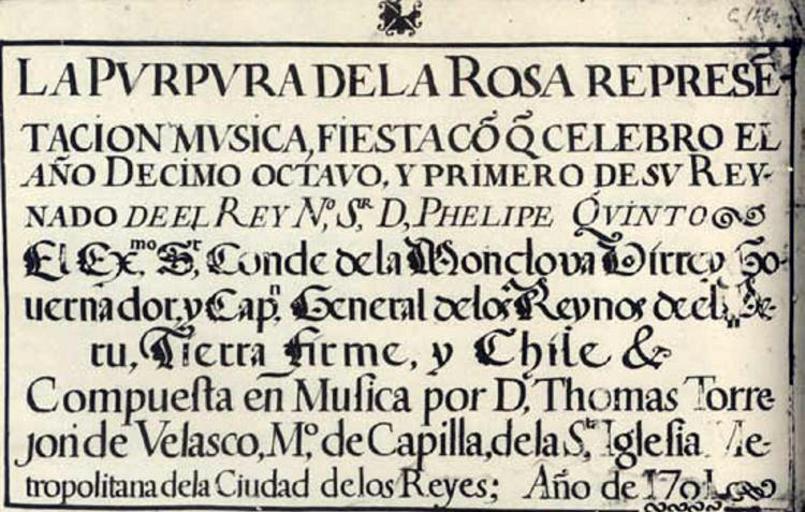 LA PVRPVRA DE LA ROSA REPRESĒ-
TACION MVSICA, FIESTA CŌ Q̃ CELEBRO EL
AÑO DECIMO OCTAVO, Y PRIMERO DE SV REY-
NADO DE EL REY N.º S.R D, PHELIPE QVINTO
El Ex.mo S.r, Conde de la Monclova Virrey Go-
uernador, y Cap.n General de los Reynos de el Pe-
ru, Tierra firme, y Chile &
Compuesta en Musica por D, Thomas Torre-
jon de Velasco, M.º de Capilla, de la S.ta Iglesia Me-
tropolitana de la Ciudad de los Reyes; Año de 1701